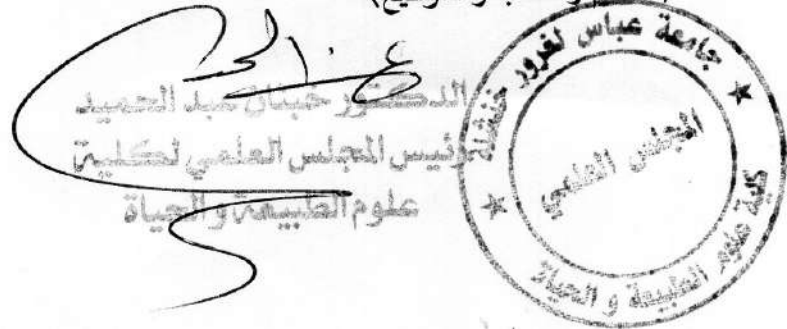 الدكتور خبنان عبد الحميد
رئيس المجلس العلمي لكلية
علوم الطبيعة والحياة
جامعة عباس لغرور خنشلة
المجلس العلمي
كلية علوم الطبيعة و الحياة